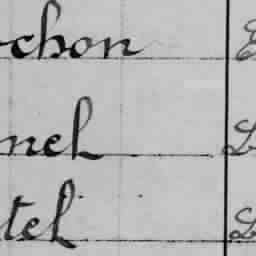 chon
nel
tel